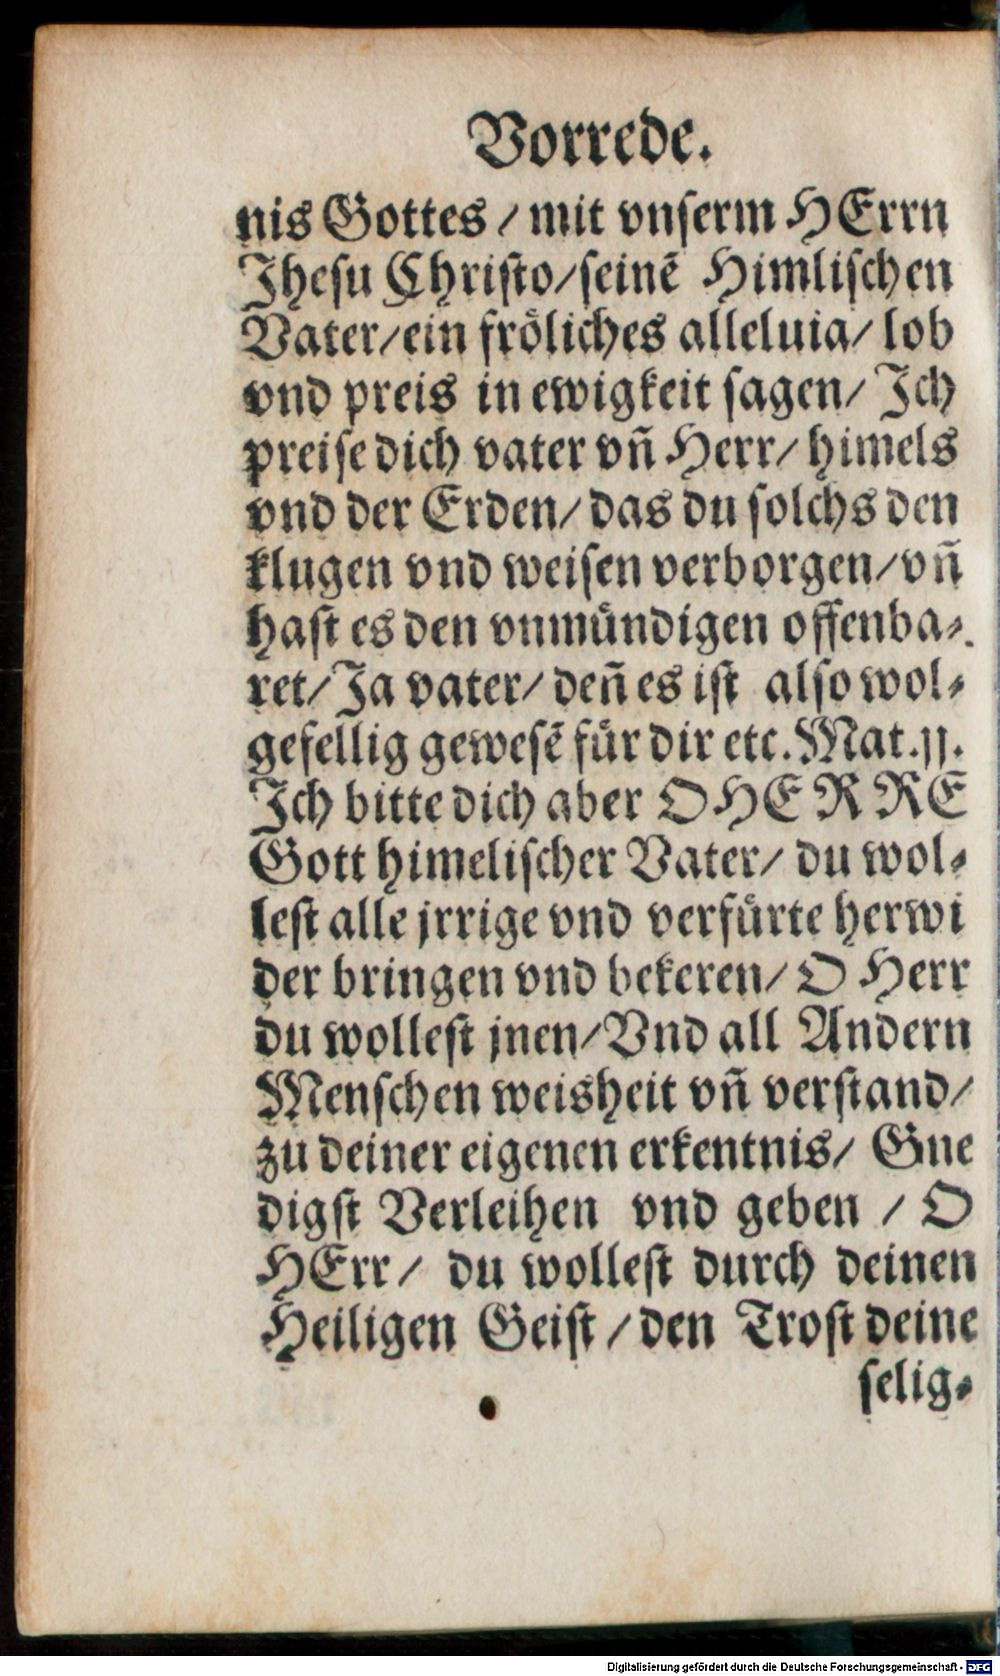 Vorrede.
nis Gottes / mit vnſerm HErrn
Jheſu Chriſto/ſeinē Himliſchen
Vater/ein froͤliches alleluia/ lob
vnd preis in ewigkeit ſagen/ Jch
preiſe dich vater vn̄ Herr/ himels
vnd der Erden/ das du ſolchs den
klugen vnd weiſen verborgen/vn̄
haſt es den vnmuͤndigen offenba⸗
ret/ Ja vater/ den̄ es iſt alſo wol⸗
gefellig geweſē fuͤr dir etc. Mat.11.
Jch bitte dich aber O HERRE
Gott himeliſcher Vater/ du wol⸗
leſt alle jrrige vnd verfuͤrte herwi
der bringen vnd bekeren/ O Herr
du wolleſt jnen/Vnd all Andern
Menſchen weisheit vn̄ verſtand/
zu deiner eigenen erkentnis/ Gne
digſt Verleihen vnd geben / O
HErr/ du wolleſt durch deinen
Heiligen Geiſt / den Troſt deine
ſelig⸗
Digitalisierung gefördert durch die Deutsche Forschungsgemeinschaft - DFG